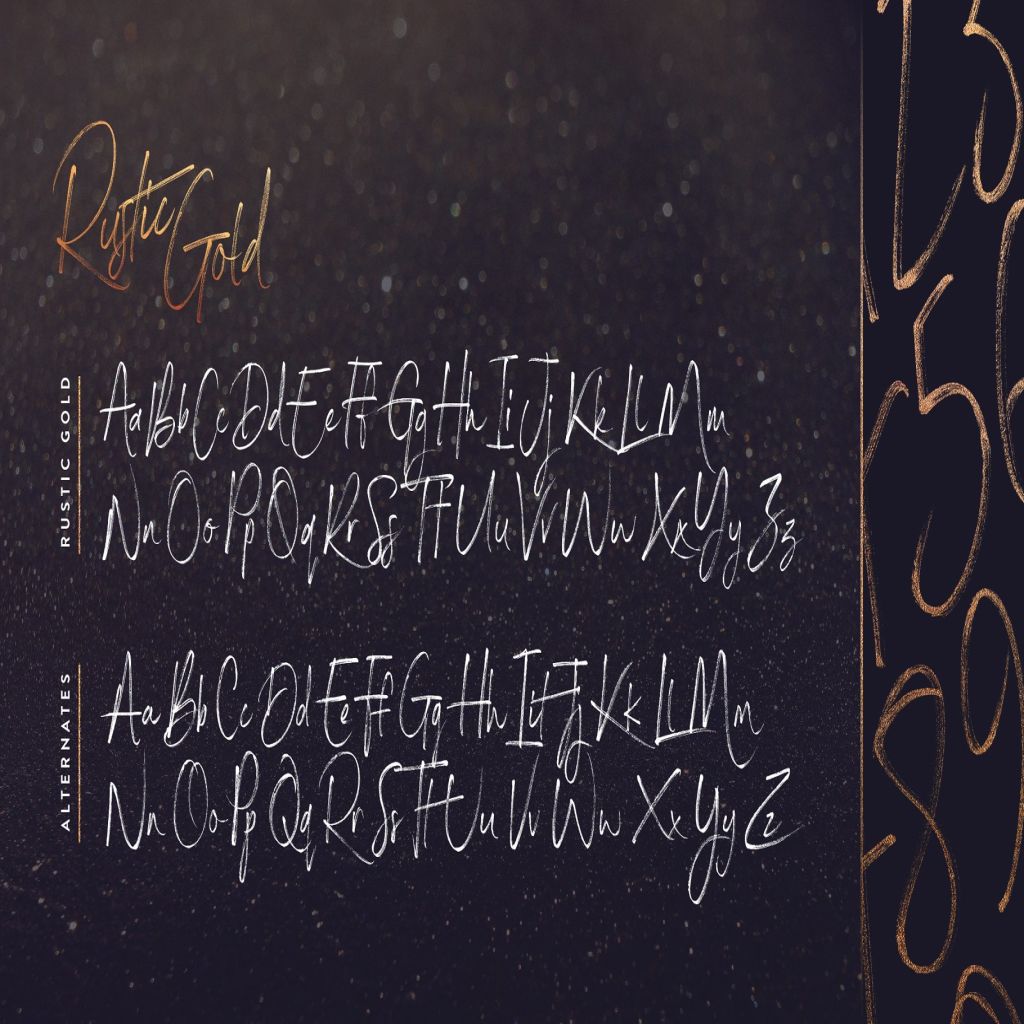 Rustic Gold
RUSTIC GOLD
AaBbCcDdEeFfGgHhIiJjKkLlMm
NnOoPpQqRrSsTtUuVvWwXxYyZz
ALTERNATES
AaBbCcDdEeFfGgHhIiJjKkLlMm
NnOoPpQqRrSsTtUuVvWwXxYyZz
5
8 9